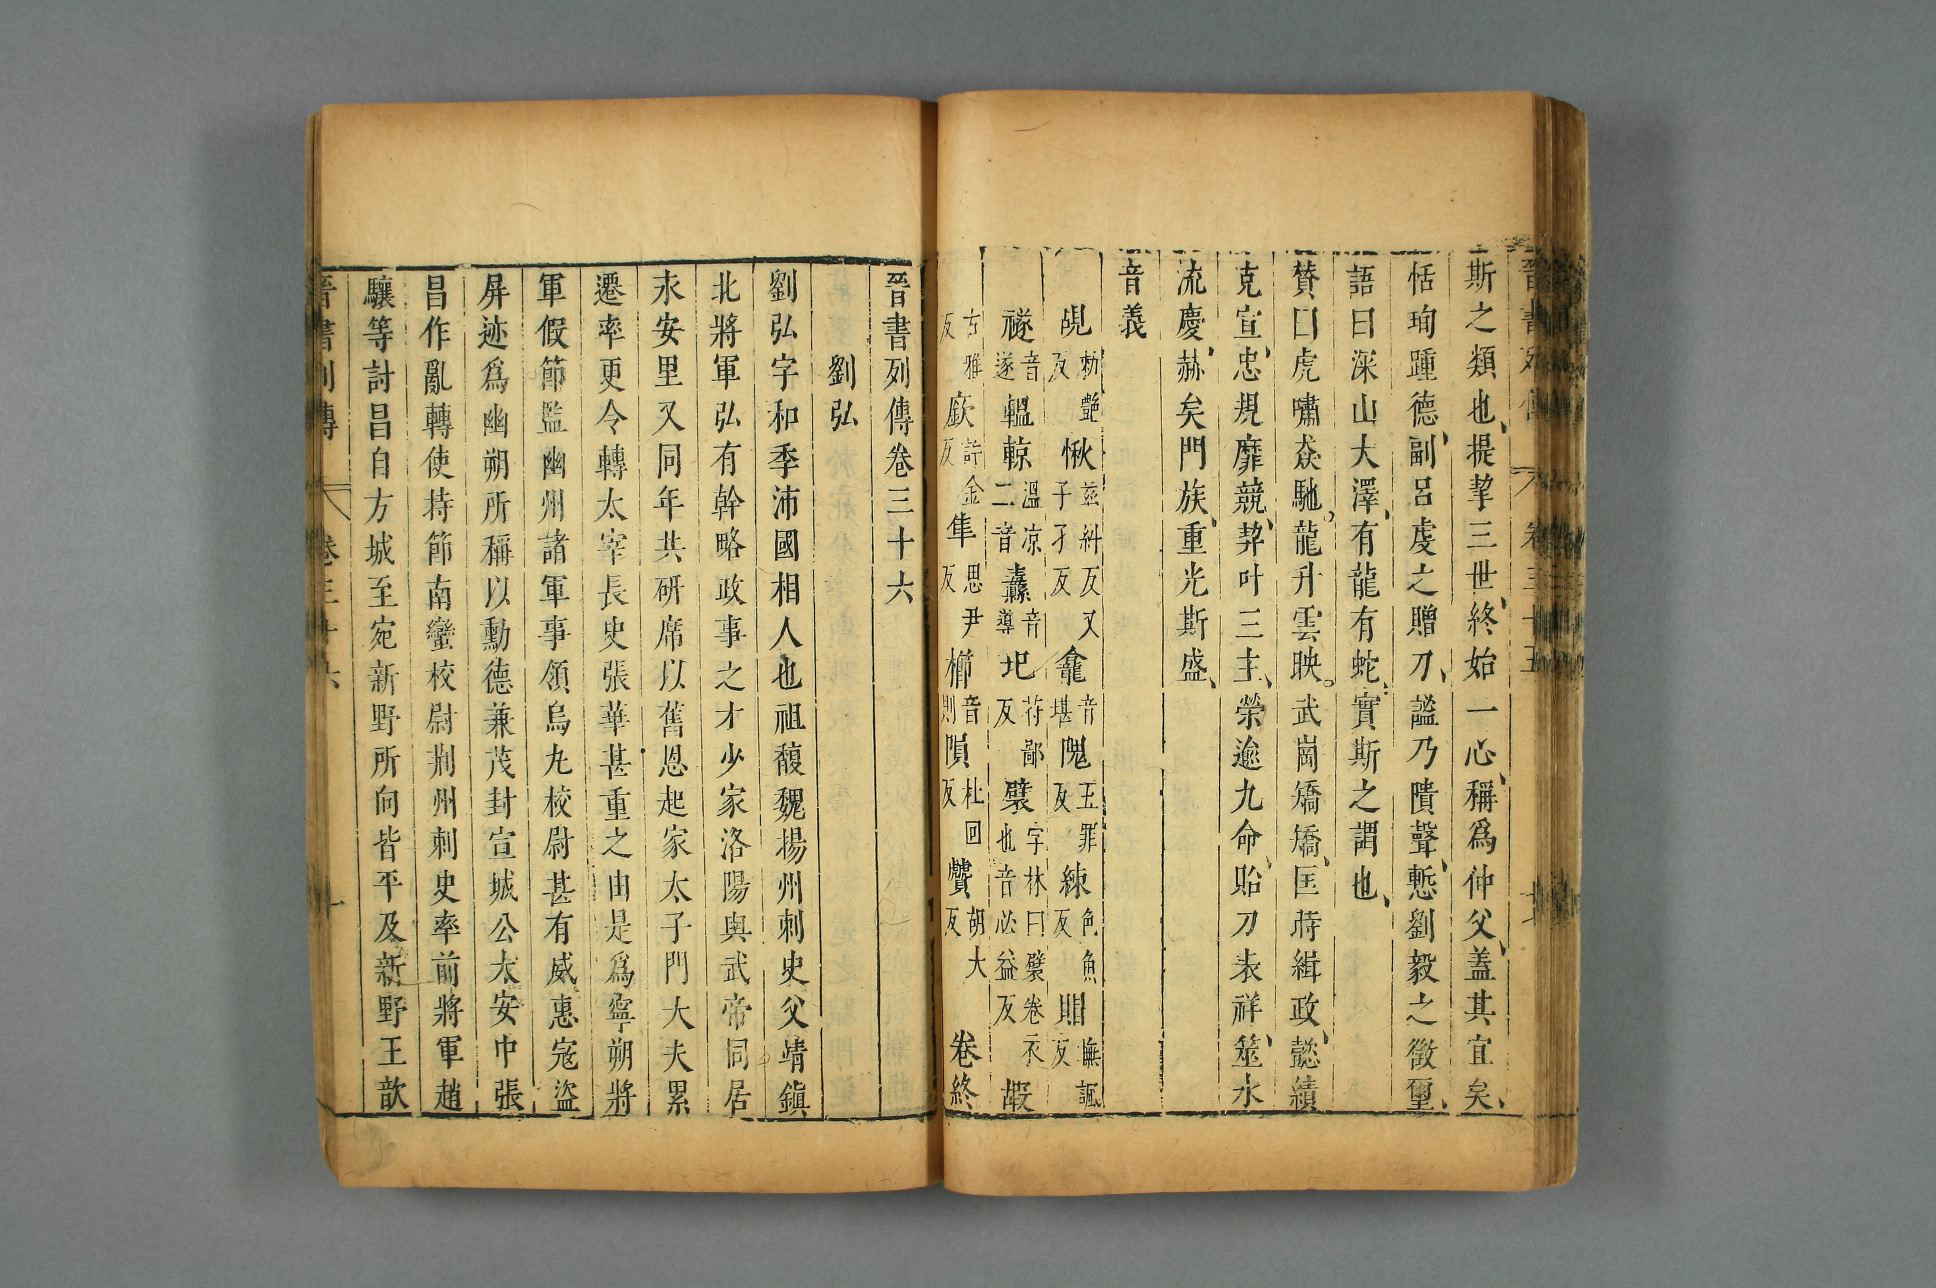 斯之類也提挈三世終始一心稱爲仲父蓋其宜矣
恬珣踵德副呂虔之贈刀謐乃隤聲慙劉毅之徵璽
語曰深山大澤有龍有蛇實斯之謂也
贊曰虎嘯猋馳龍升雲映武崗矯矯匡時緝政懿績
克宣忠規靡競契叶三主榮逾九命貽刀表祥筮水
流慶赫矣門族重光斯盛
音義
覘勑艶反愀茲糾反又子孑反龕音堪隗五罪反練色魚反䀹幠諷反
禭音遂輼輬溫凉二音纛音導圮符鄙反襞字林曰襞卷衣也音必益反嘏
古雅反廞許金反隼思尹反櫛音則隤杜回反鬢胡大反卷終
晉書列傳卷三十六
劉弘
劉弘字和季沛國相人也祖馥魏揚州刺史父靖鎮
北將軍弘有幹略政事之才少家洛陽與武帝同居
永安里又同年共研席以舊恩起家太子門大夫累
遷率更令轉太宰長史張華甚重之由是爲寧朔將
軍假節監幽州諸軍事領烏丸校尉甚有威惠寇盜
屏迹爲幽朔所稱以勳德兼茂封宣城公太安中張
昌作亂轉使持節南蠻校尉荆州刺史率前將軍趙
驤等討昌自方城至宛新野所向皆平及新野王歆
晉書列傳 卷三十六 一